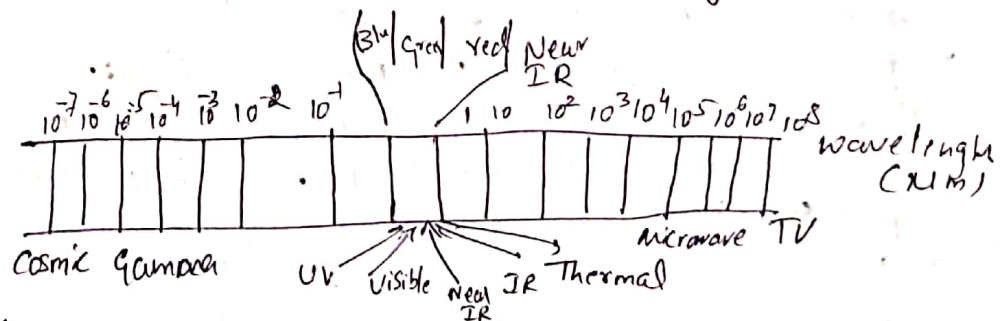 Blu Green red Near
IR
10⁻⁷ 10⁻⁶ 10⁻⁵ 10⁻⁴ 10⁻³ 10⁻² 10⁻¹ 1 10 10² 10³ 10⁴ 10⁵ 10⁶ 10⁷ 10⁸ wavelenght
(μm)
Cosmic Gamma UV Visible Near IR IR Thermal Microwave TV